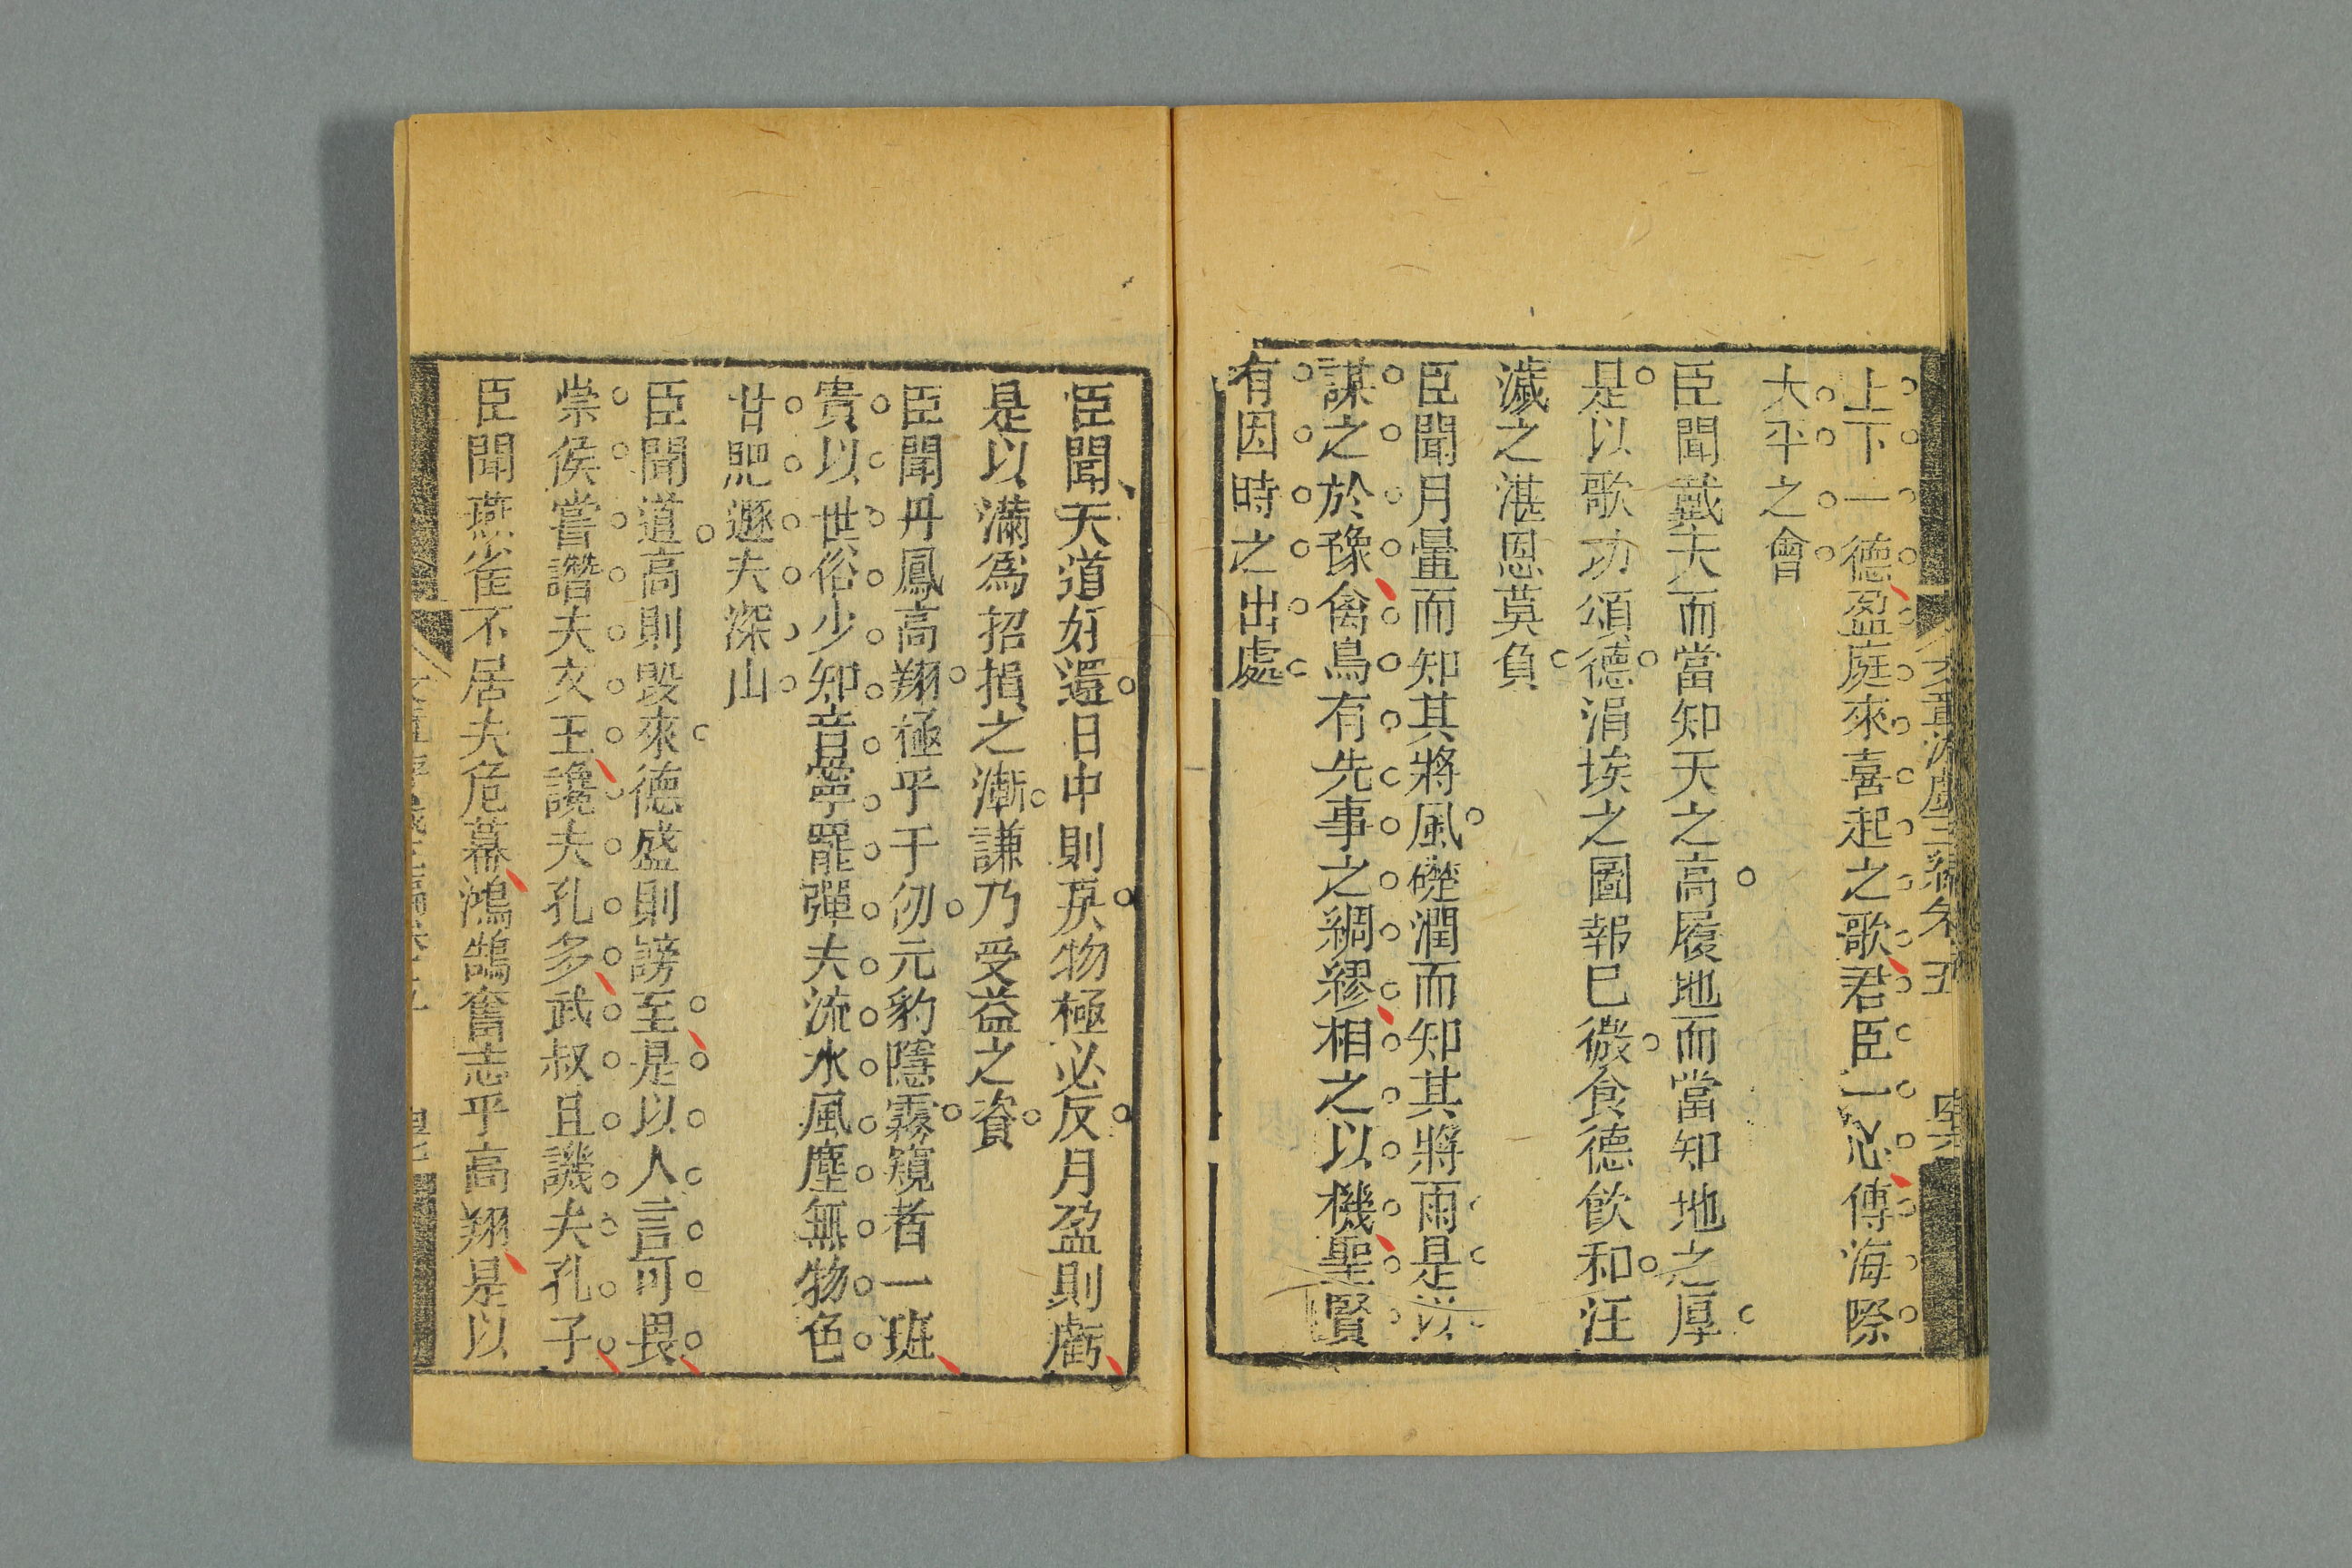 上下一德盈庭來喜起之歌君臣一心傳海際
大平之會
臣聞戴天而當知天之高履地而當知地之厚
是以歌功頌德涓埃之圖報已微食德飲和汪
濊之湛恩莫負
臣聞月暈而知其將風礎潤而知其將雨是以
謀之於豫禽鳥有先事之綢繆相之以機聖賢
有因時之出處
臣聞天道好還日中則昃物極必反月盈則虧
是以滿爲招損之漸謙乃受益之資
臣聞丹鳳高翔極乎千仞元豹隱霧窺者一班
貴以世俗少知音寧罷彈夫流水風塵無物色
甘肥遯夫深山
臣聞道高則毀來德盛則謗至是以人言可畏
崇侯嘗譖夫文王讒夫孔多武叔且譏夫孔子
臣聞燕雀不居夫危幕鴻鵠奮志乎高翔是以